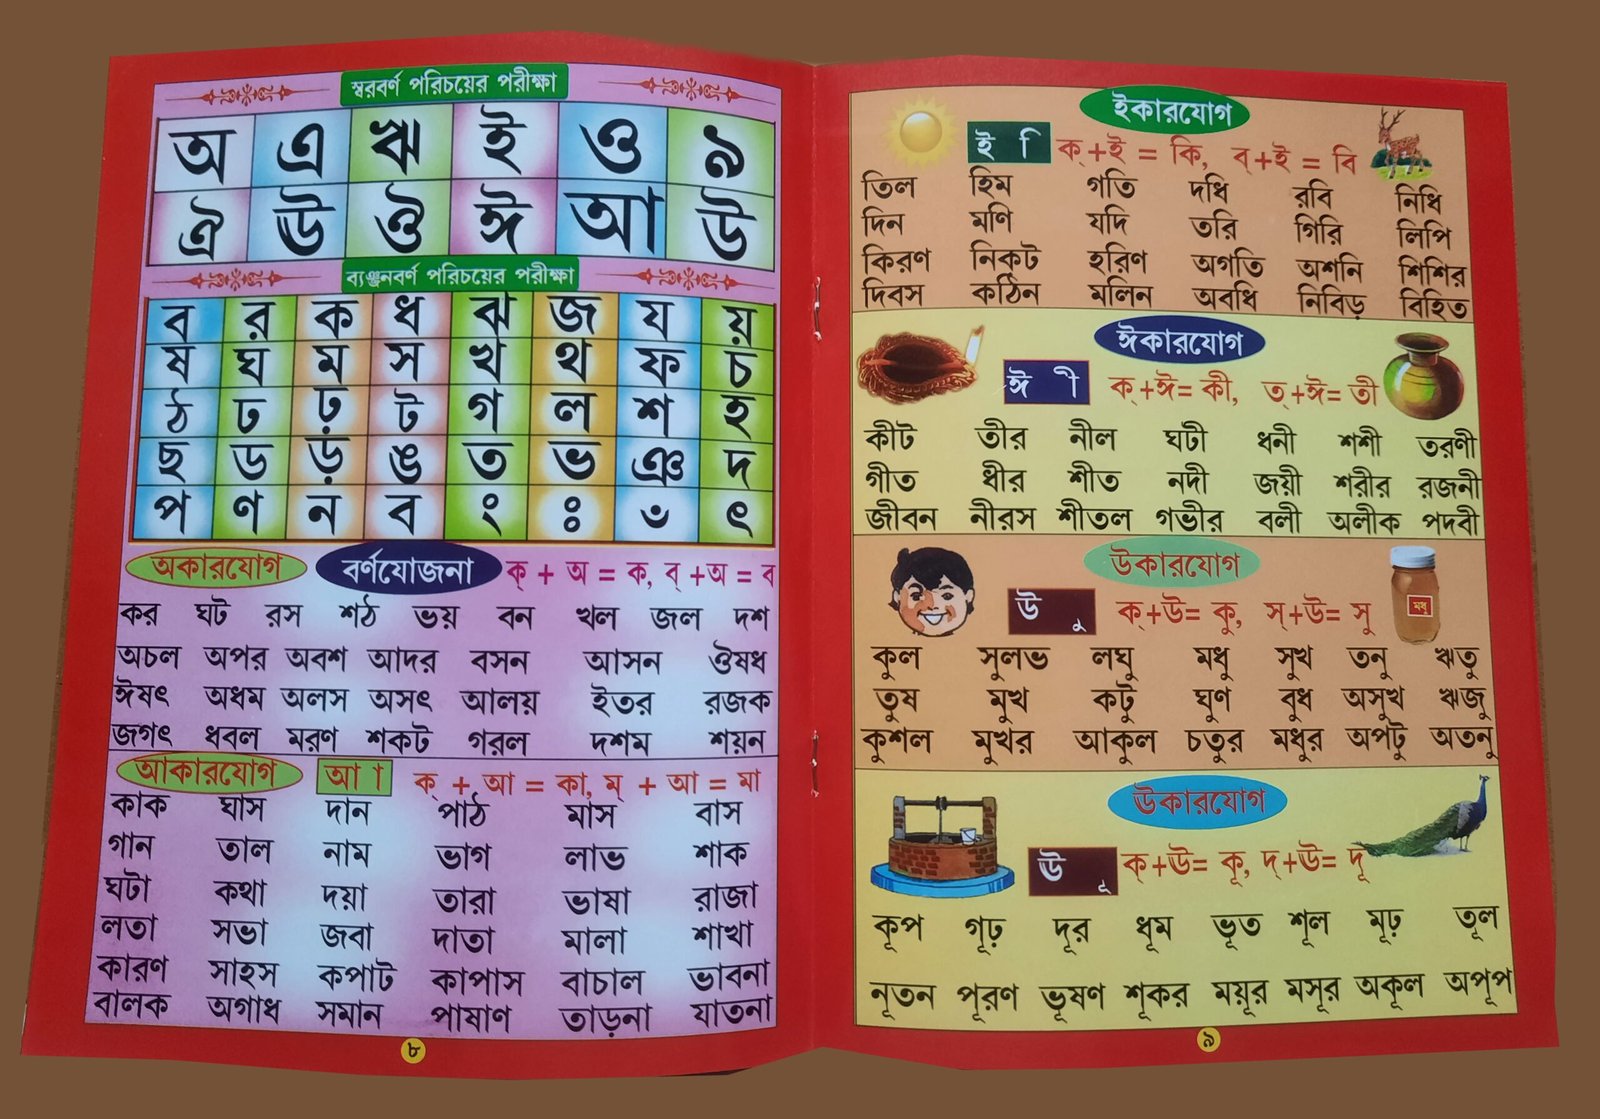 স্বরবর্ণ পরিচয়ের পরীক্ষা
অ এ ঋ ই ও ৯
ঐ ঊ ঔ ঈ আ উ
ব্যঞ্জনবর্ণ পরিচয়ের পরীক্ষা
ব র ক ধ ঝ জ য য়
ষ ঘ ম স খ থ ফ চ
ঠ ঢ ঢ় ট গ ল শ হ
ছ ড ড় ঙ ত ভ ঞ দ
প ণ ন ব ং ঃ ঁ ৎ
অকারযোগ বর্ণযোজনা ক্ + অ = ক, ব্ +অ = ব
কর ঘট রস শঠ ভয় বন খল জল দশ
অচল অপর অবশ আদর বসন আসন ঔষধ
ঈষৎ অধম অলস অসৎ আলয় ইতর রজক
জগৎ ধবল মরণ শকট গরল দশম শয়ন
আকারযোগ আ া ক্ + আ = কা, ম্ + আ = মা
কাক ঘাস দান পাঠ মাস বাস
গান তাল নাম ভাগ লাভ শাক
ঘটা কথা দয়া তারা ভাষা রাজা
লতা সভা জবা দাতা মালা শাখা
কারণ সাহস কপাট কাপাস বাচাল ভাবনা
বালক অগাধ সমান পাষাণ তাড়না যাতনা
৮
ইকারযোগ
ই ি ক্+ই = কি, ব্+ই = বি
তিল হিম গতি দধি রবি নিধি
দিন মণি যদি তরি গিরি লিপি
কিরণ নিকট হরিণ অগতি অশনি শিশির
দিবস কঠিন মলিন অবধি নিবিড় বিহিত
ঈকারযোগ
ঈ ী ক্+ঈ= কী, ত্+ঈ= তী
কীট তীর নীল ঘটী ধনী শশী তরণী
গীত ধীর শীত নদী জয়ী শরীর রজনী
জীবন নীরস শীতল গভীর বলী অলীক পদবী
উকারযোগ
উ ু ক্+উ= কু, স্+উ= সু
মধু
কুল সুলভ লঘু মধু সুখ তনু ঋতু
তুষ মুখ কটু ঘুণ বুধ অসুখ ঋজু
কুশল মুখর আকুল চতুর মধুর অপটু অতনু
ঊকারযোগ
ঊ ূ ক্+ঊ= কূ, দ্+ঊ= দূ
কূপ গূঢ় দূর ধূম ভূত শূল মূঢ় তূল
নূতন পূরণ ভূষণ শূকর ময়ূর মসূর অকূল অপূপ
৯